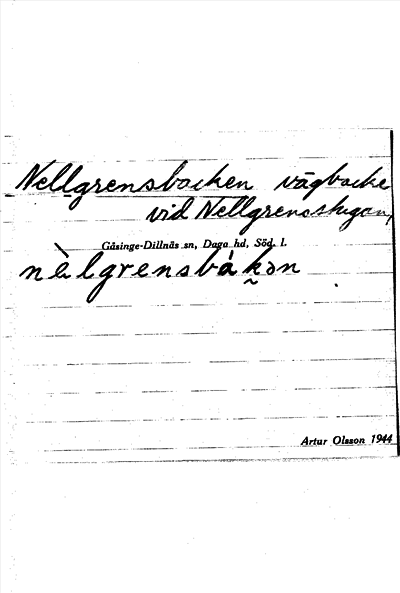 Nellgrensbacken vägbacke
vid Nellgrensstugan,
Gåsinge-Dillnäs sn, Daga hd, Söd. l.
nèlgrensbák̬ən
Artur Olsson 1944